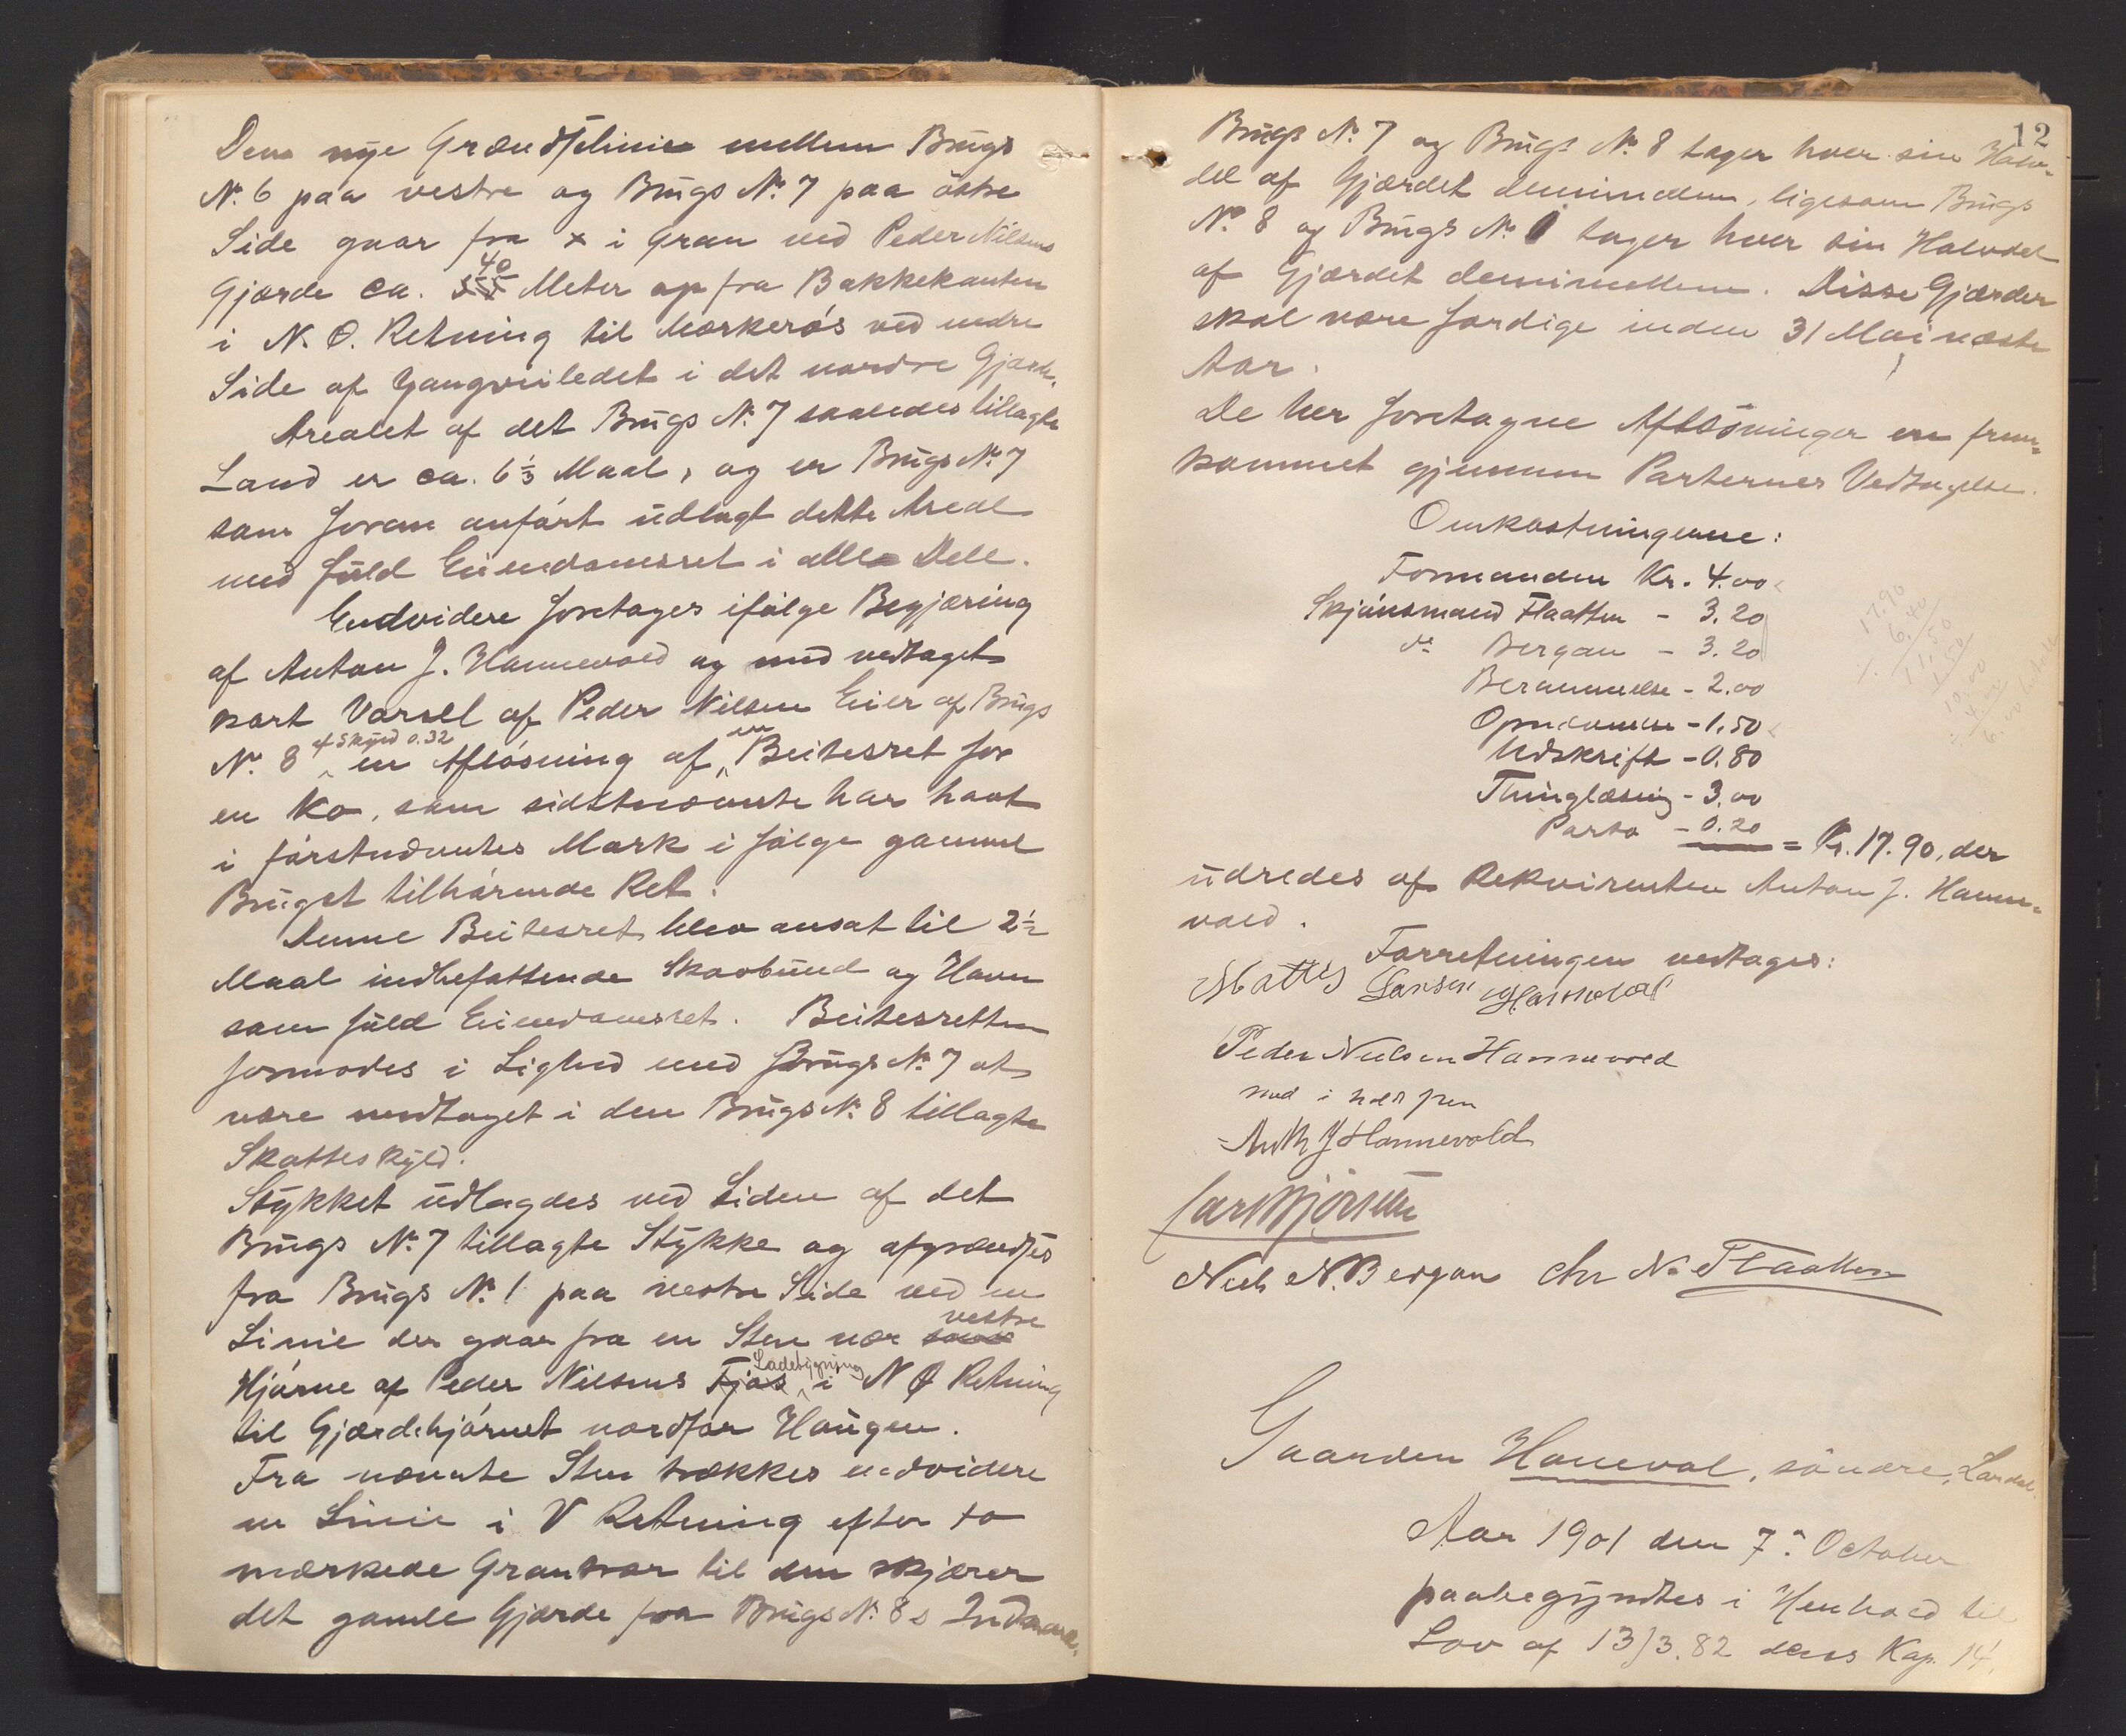 Den nye Grændselinie mellem Brugs
No. 6 paa vestre og Brugs No. 7 paa östre
Side gaar fra x i Gran ved Peder Nilsens
Gjærde ca. 40 Meter op fra Bakkekanten
i N. O. Retning til Mærkerös ved nedre
Side af Gangveiledet i det nordre Gjærde.
Arealet af det Brugs No. 7 saaledes tillagte
Land er ca. 6 1/3 Maal, og er Brugs No. 7
som foran anført udlagt dette Areal
med fuld Eiendomsret i alle Dele.
Endvidere foretages ifølge Begjæring
af Anton J. Hannevold og med vedtaget
kort Varsel af Peder Nilsen Eier af Brugs
No. 8 af Skyld 0.32 en Afløsning af en Beitesret for
en Ko, som sidstnævnte har havt
i førstnævntes Mark i følge gammel
Bruget tilhørende Ret.
Denne Beitesret blev ansat til 2 1/2
Maal indbefattende Skovbund og Havn
som fuld Eiendomsret. Beitesretten
formodes i Lighed med Brugs No. 7 at
være medtaget i den Brugs No. 8 tillagte
Skatteskyld.
Stykket udlagdes ved Siden af det
Brugs No. 7 tillagte Stykke og afgrændses
fra Brugs No. 1 paa vestre Side ved en
Linie der gaar fra en Sten nær vestre
Hjørne af Peder Nilsens Fjøs Ladebygning i N Ø Retning
til Gjærdehjørnet nordfor Haugen.
Fra nævnte Sten trækkes endvidere
en Linie i V Retning efter to
mærkede Grantrær til den skjærer
det gamle Gjærde fra Brugs No. 8s Indmark.
12
Brugs No. 7 og Brugs No. 8 tager hver sin Halv-
del af Gjærdet demimellem, ligesom Brugs
No. 8 og Brugs No. 1 tager hver sin Halvdel
af Gjærdet demimellem. Disse Gjærder
skal være færdige inden 31 Mai næste
Aar.
De her foretagne Afløsninger ere frem-
kommet gjennem Parternes Vedtagelse.
Omkostningerne:
Formanden Kr. 4.00
Skjønsmand Flaatten - 3.20
do Bergan - 3.20
Berammelse - 2.00
Opnævnelse - 1.50
Udskrift - 0.80
Thinglæsning - 3.00
Porto - 0.20 = Kr. 17.90, der
17.90
6.40
11.50
1.50
10.00
4.00
6.00
udredes af Rekvirenten Anton J. Hanne-
vold.
Forretningen vedtages:
Mattis Larsen Hannevold
Peder Neelsen Hannevold
med i hold pen
Anth J Hannevold
Carl Bjørnson
Niels N. Bergan Chr N. Flaatten
Gaarden Haneval, söndre, Lardal.
Aar 1901 den 7de October
paabegyndtes i Henhold til
Lov af 13/3.82 dens Kap. 14,